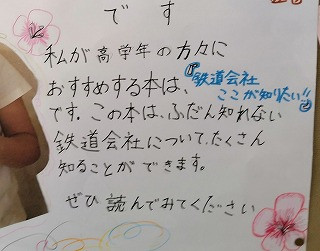 です
私が高学年の方々に
おすすめする本は、『鉄道会社
ここが知りたい!!』
です。この本は、ふだん知れない
鉄道会社について、たくさん
知ることができます。
ぜひ読んでみてください